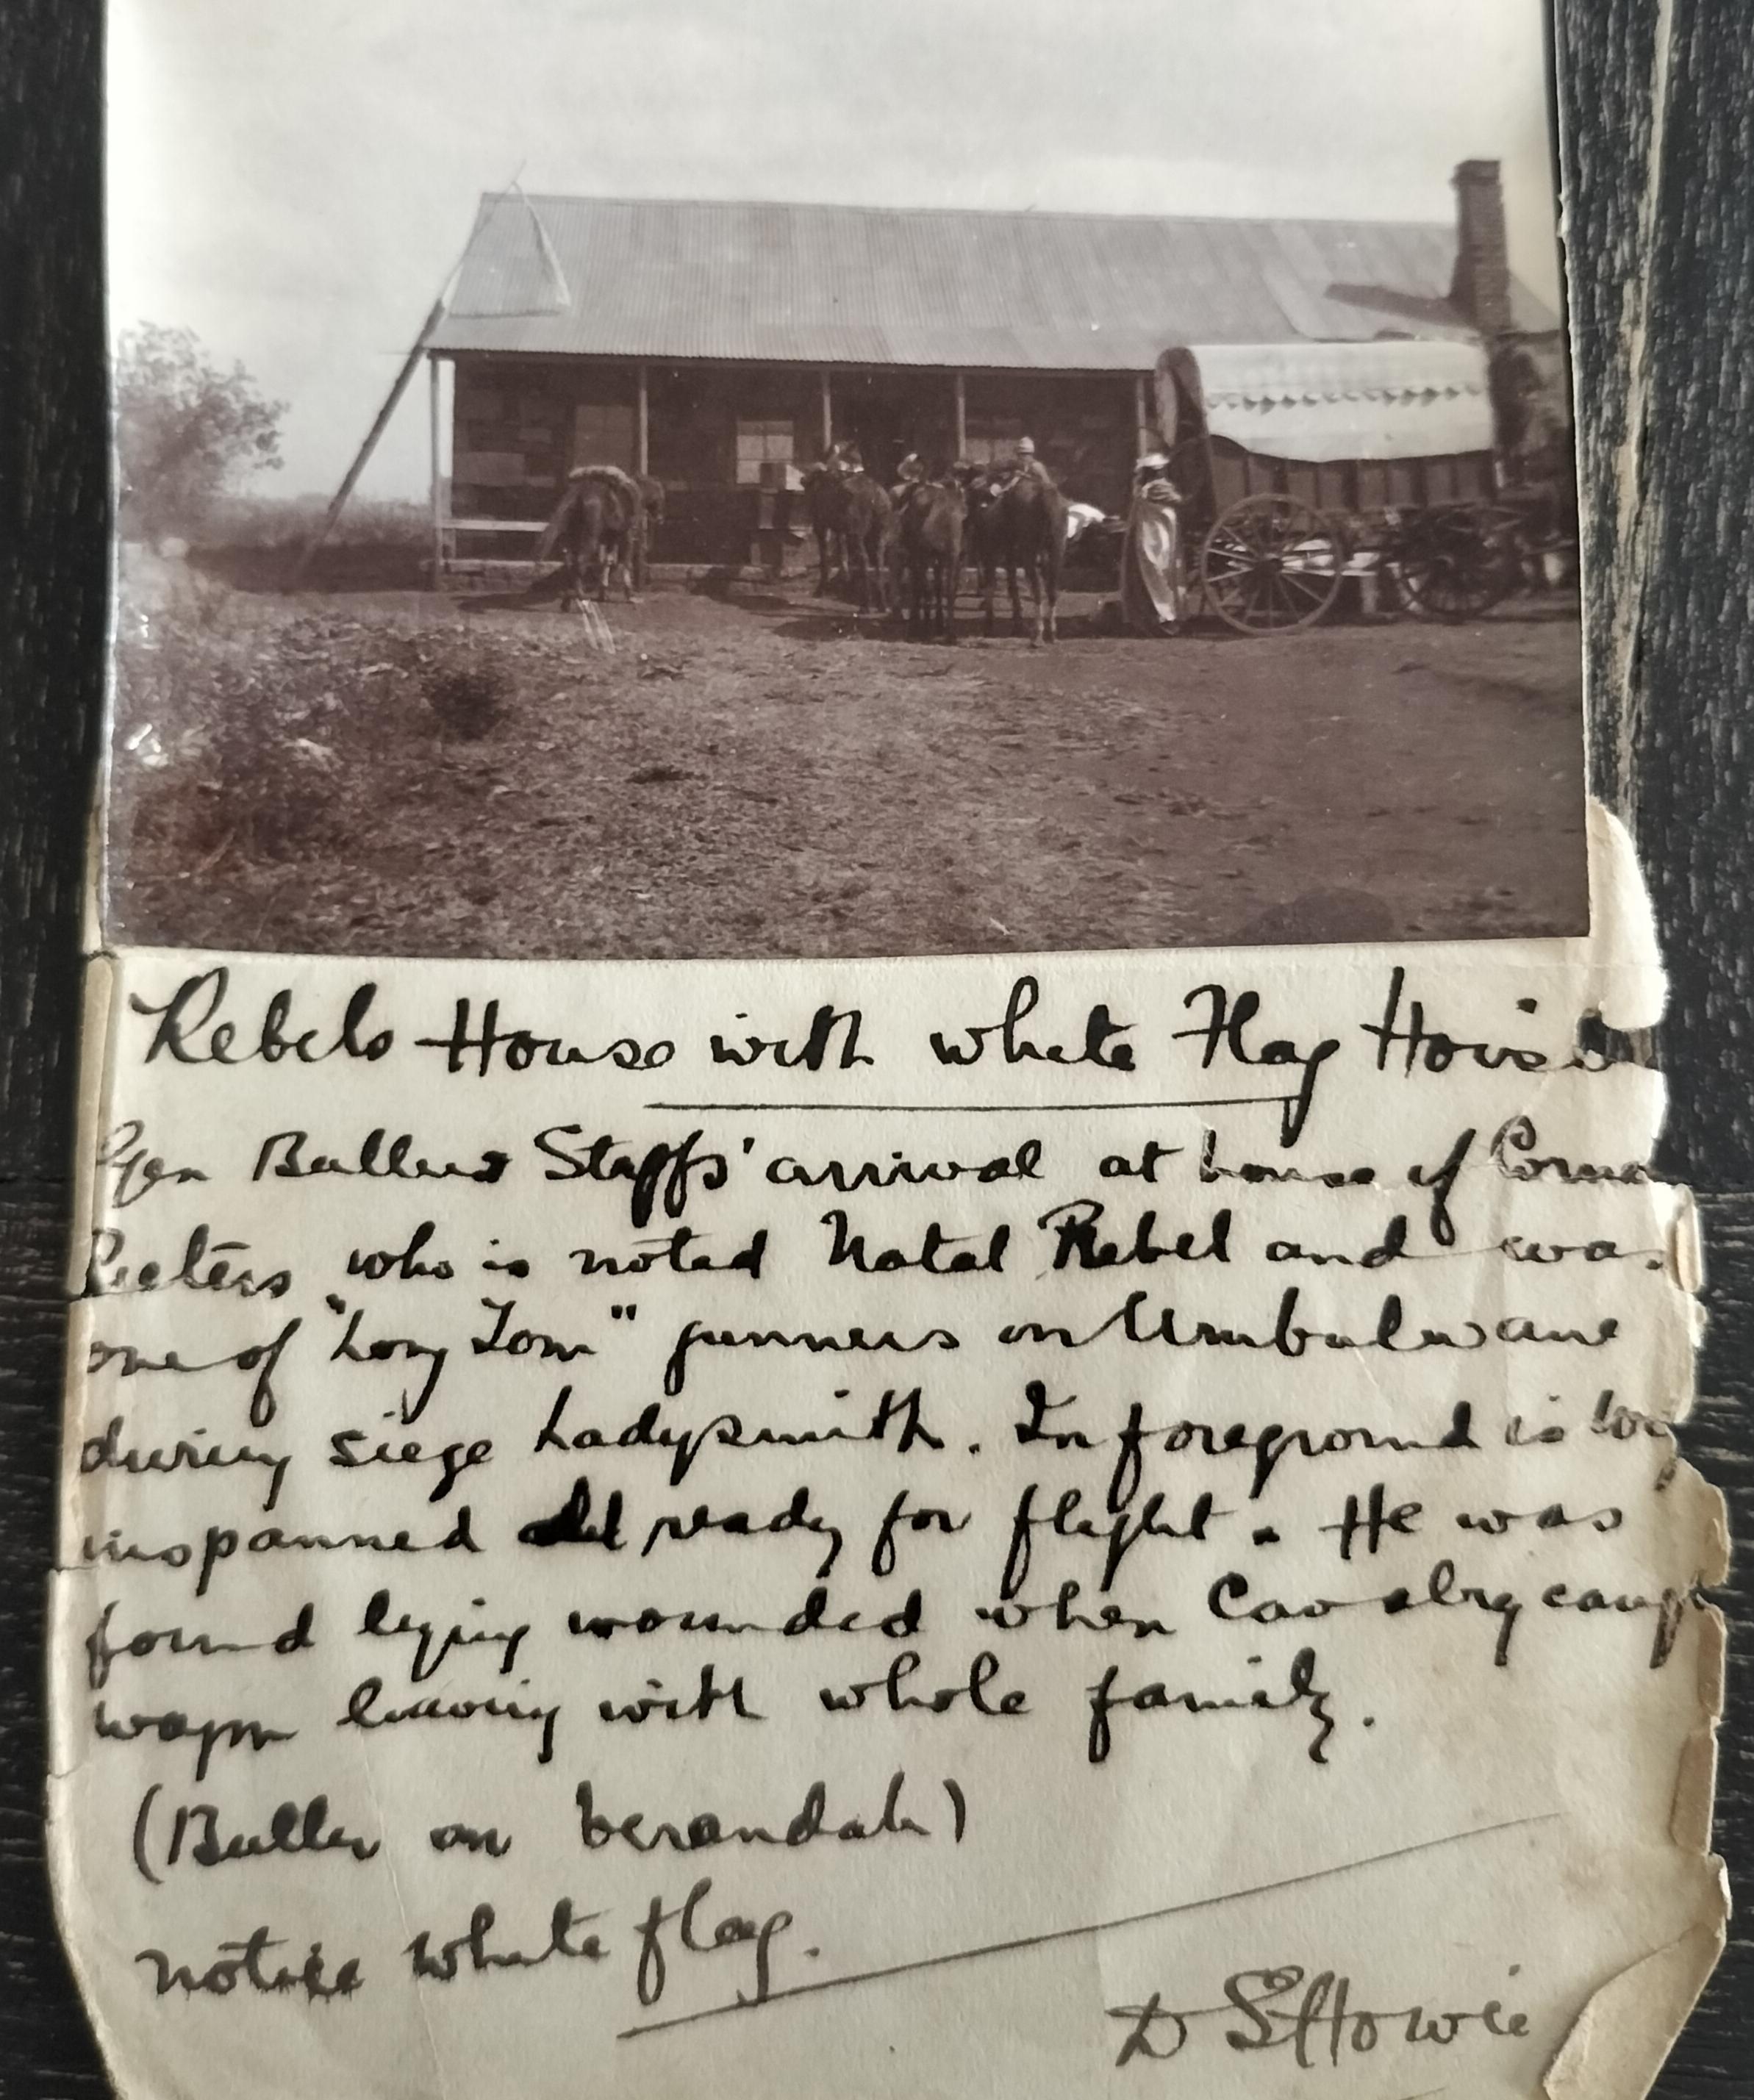 Rebels House with white Flag
Gen Bullers Staffs' arrival at house of
who is noted Natal Rebel and was
one of "Long Tom" gunners on Umbulwane
during siege Ladysmith. In foreground is
inspanned all ready for flight. He was
found lying wounded when Cavalry
wagon leaving with whole family.
(Buller on verandah)
notice white flag.